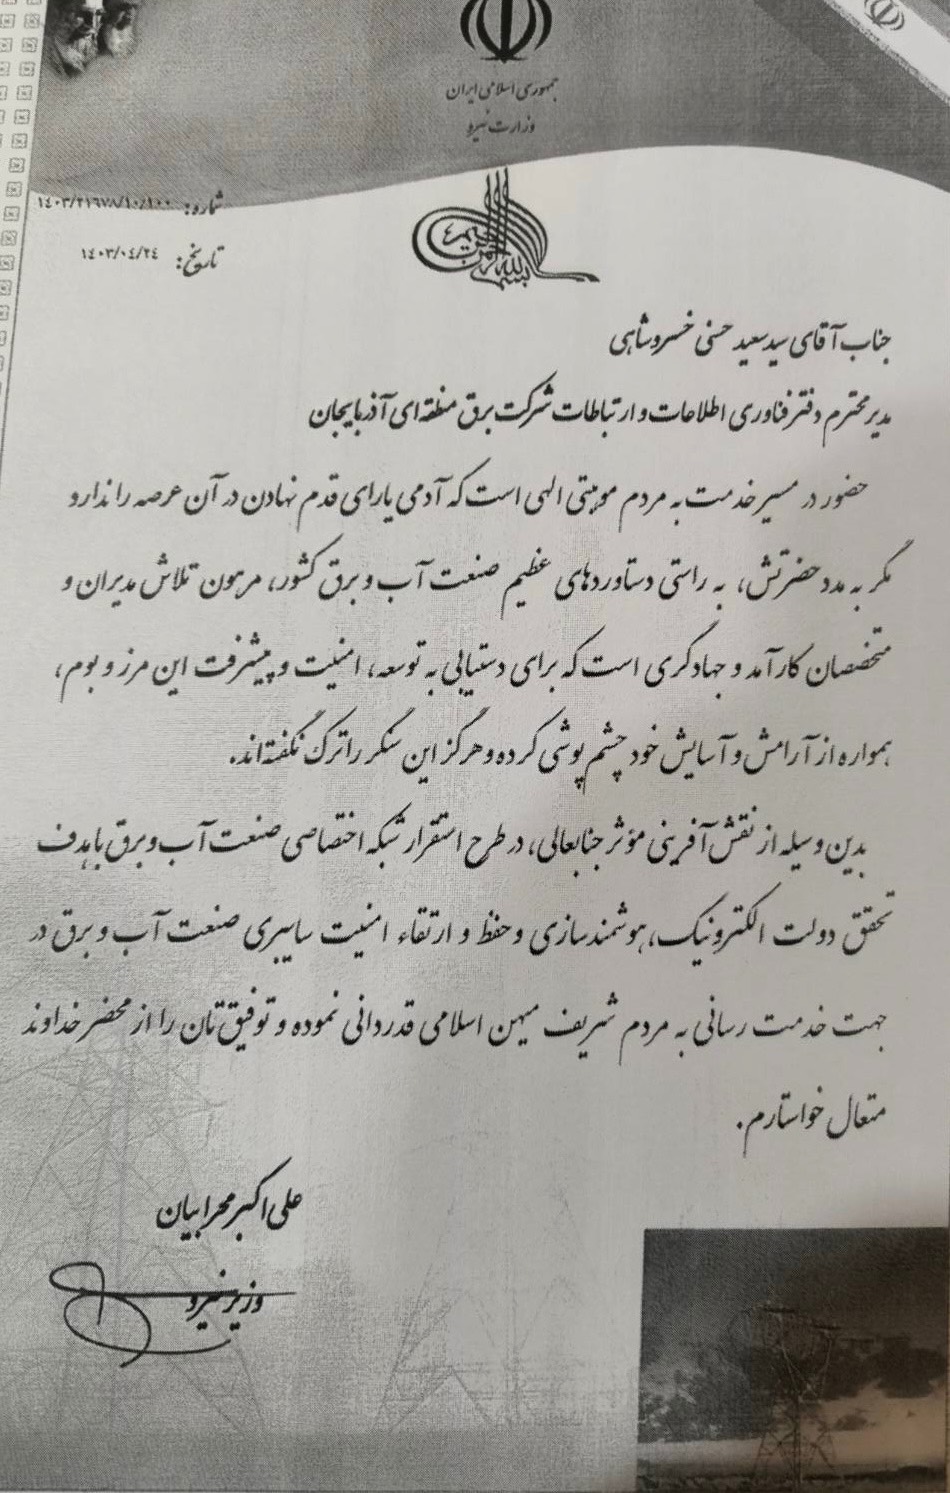 جمهوری اسلامی ایران
وزارت نیرو
شماره: ۱۴۰۳/۲۱۶۷۸/۱۰/۱۰۰
تاریخ: ۱۴۰۳/۰۴/۲۴
بسم الله الرحمن الرحیم
جناب آقای سید سعید حسنی خسروشاهی
مدیر محترم دفتر فناوری اطلاعات و ارتباطات شرکت برق منطقه ای آذربایجان
حضور در مسیر خدمت به مردم موهبتی الهی است که آدمی یارای قدم نهادن در آن عرصه را ندارد
مگر به مدد حضرتش، به راستی دستاوردهای عظیم صنعت آب و برق کشور، مرهون تلاش مدیران و
متخصصان کارآمد و جهادگری است که برای دستیابی به توسعه، امنیت و پیشرفت این مرز و بوم،
همواره از آرامش و آسایش خود چشم پوشی کرده و هرگز این سنگر را ترک نگفته‌اند.
بدین وسیله از نقش آفرینی مؤثر جنابعالی، در طرح استقرار شبکه اختصاصی صنعت آب و برق با هدف
تحقق دولت الکترونیک، هوشمندسازی و حفظ و ارتقاء امنیت سایبری صنعت آب و برق در
جهت خدمت رسانی به مردم شریف میهن اسلامی قدردانی نموده و توفیق تان را از محضر خداوند
متعال خواستارم.
علی اکبر محرابیان
وزیر نیرو